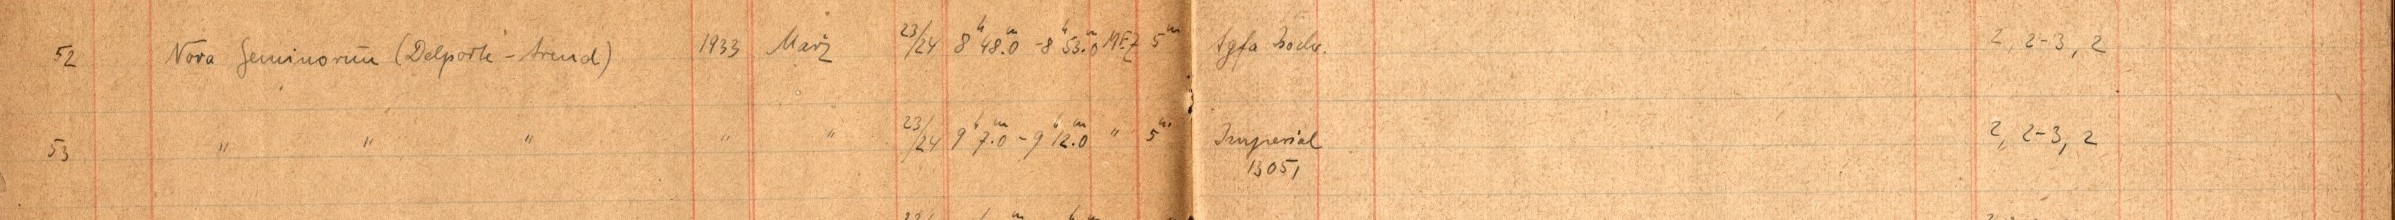 52 Nova Geminorum (Delporte - Arend) 1933 März 23/24 8h 48.m0 - 8h 53.m0 MEZ 5m Agfa Isochr. 2, 2-3, 2
53 " " " " " 23/24 9h 7.m0 - 9h 12.m0 " 5m Imperial 2, 2-3, 2
13051